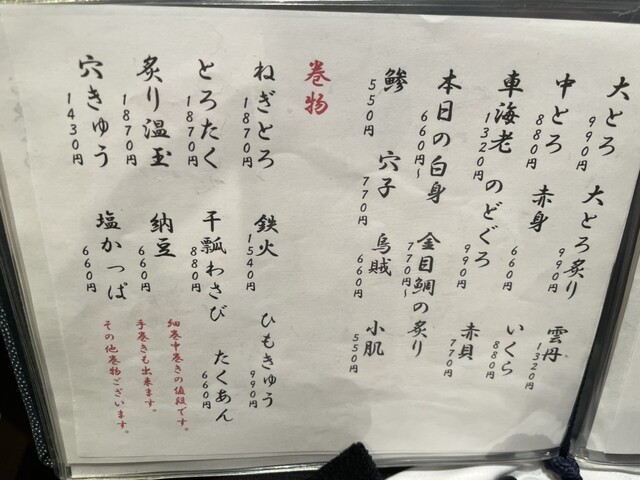 大とろ 990円
大とろ炙り 990円
雲丹 1320円
中とろ 880円
赤身 660円
いくら 880円
車海老 1320円
のどぐろ 990円
赤貝 770円
本日の白身 660円〜
金目鯛の炙り 770円〜
鯵 550円
穴子 770円
烏賊 660円
小肌 550円
巻物
ねぎとろ 1870円
鉄火 1540円
ひもきゅう 990円
とろたく 1870円
干瓢わさび 880円
たくあん 660円
炙り温玉 1870円
納豆 660円
細巻中巻きの値段です。
穴きゅう 1430円
塩かっぱ 660円
手巻きも出来ます。
その他巻物ございます。